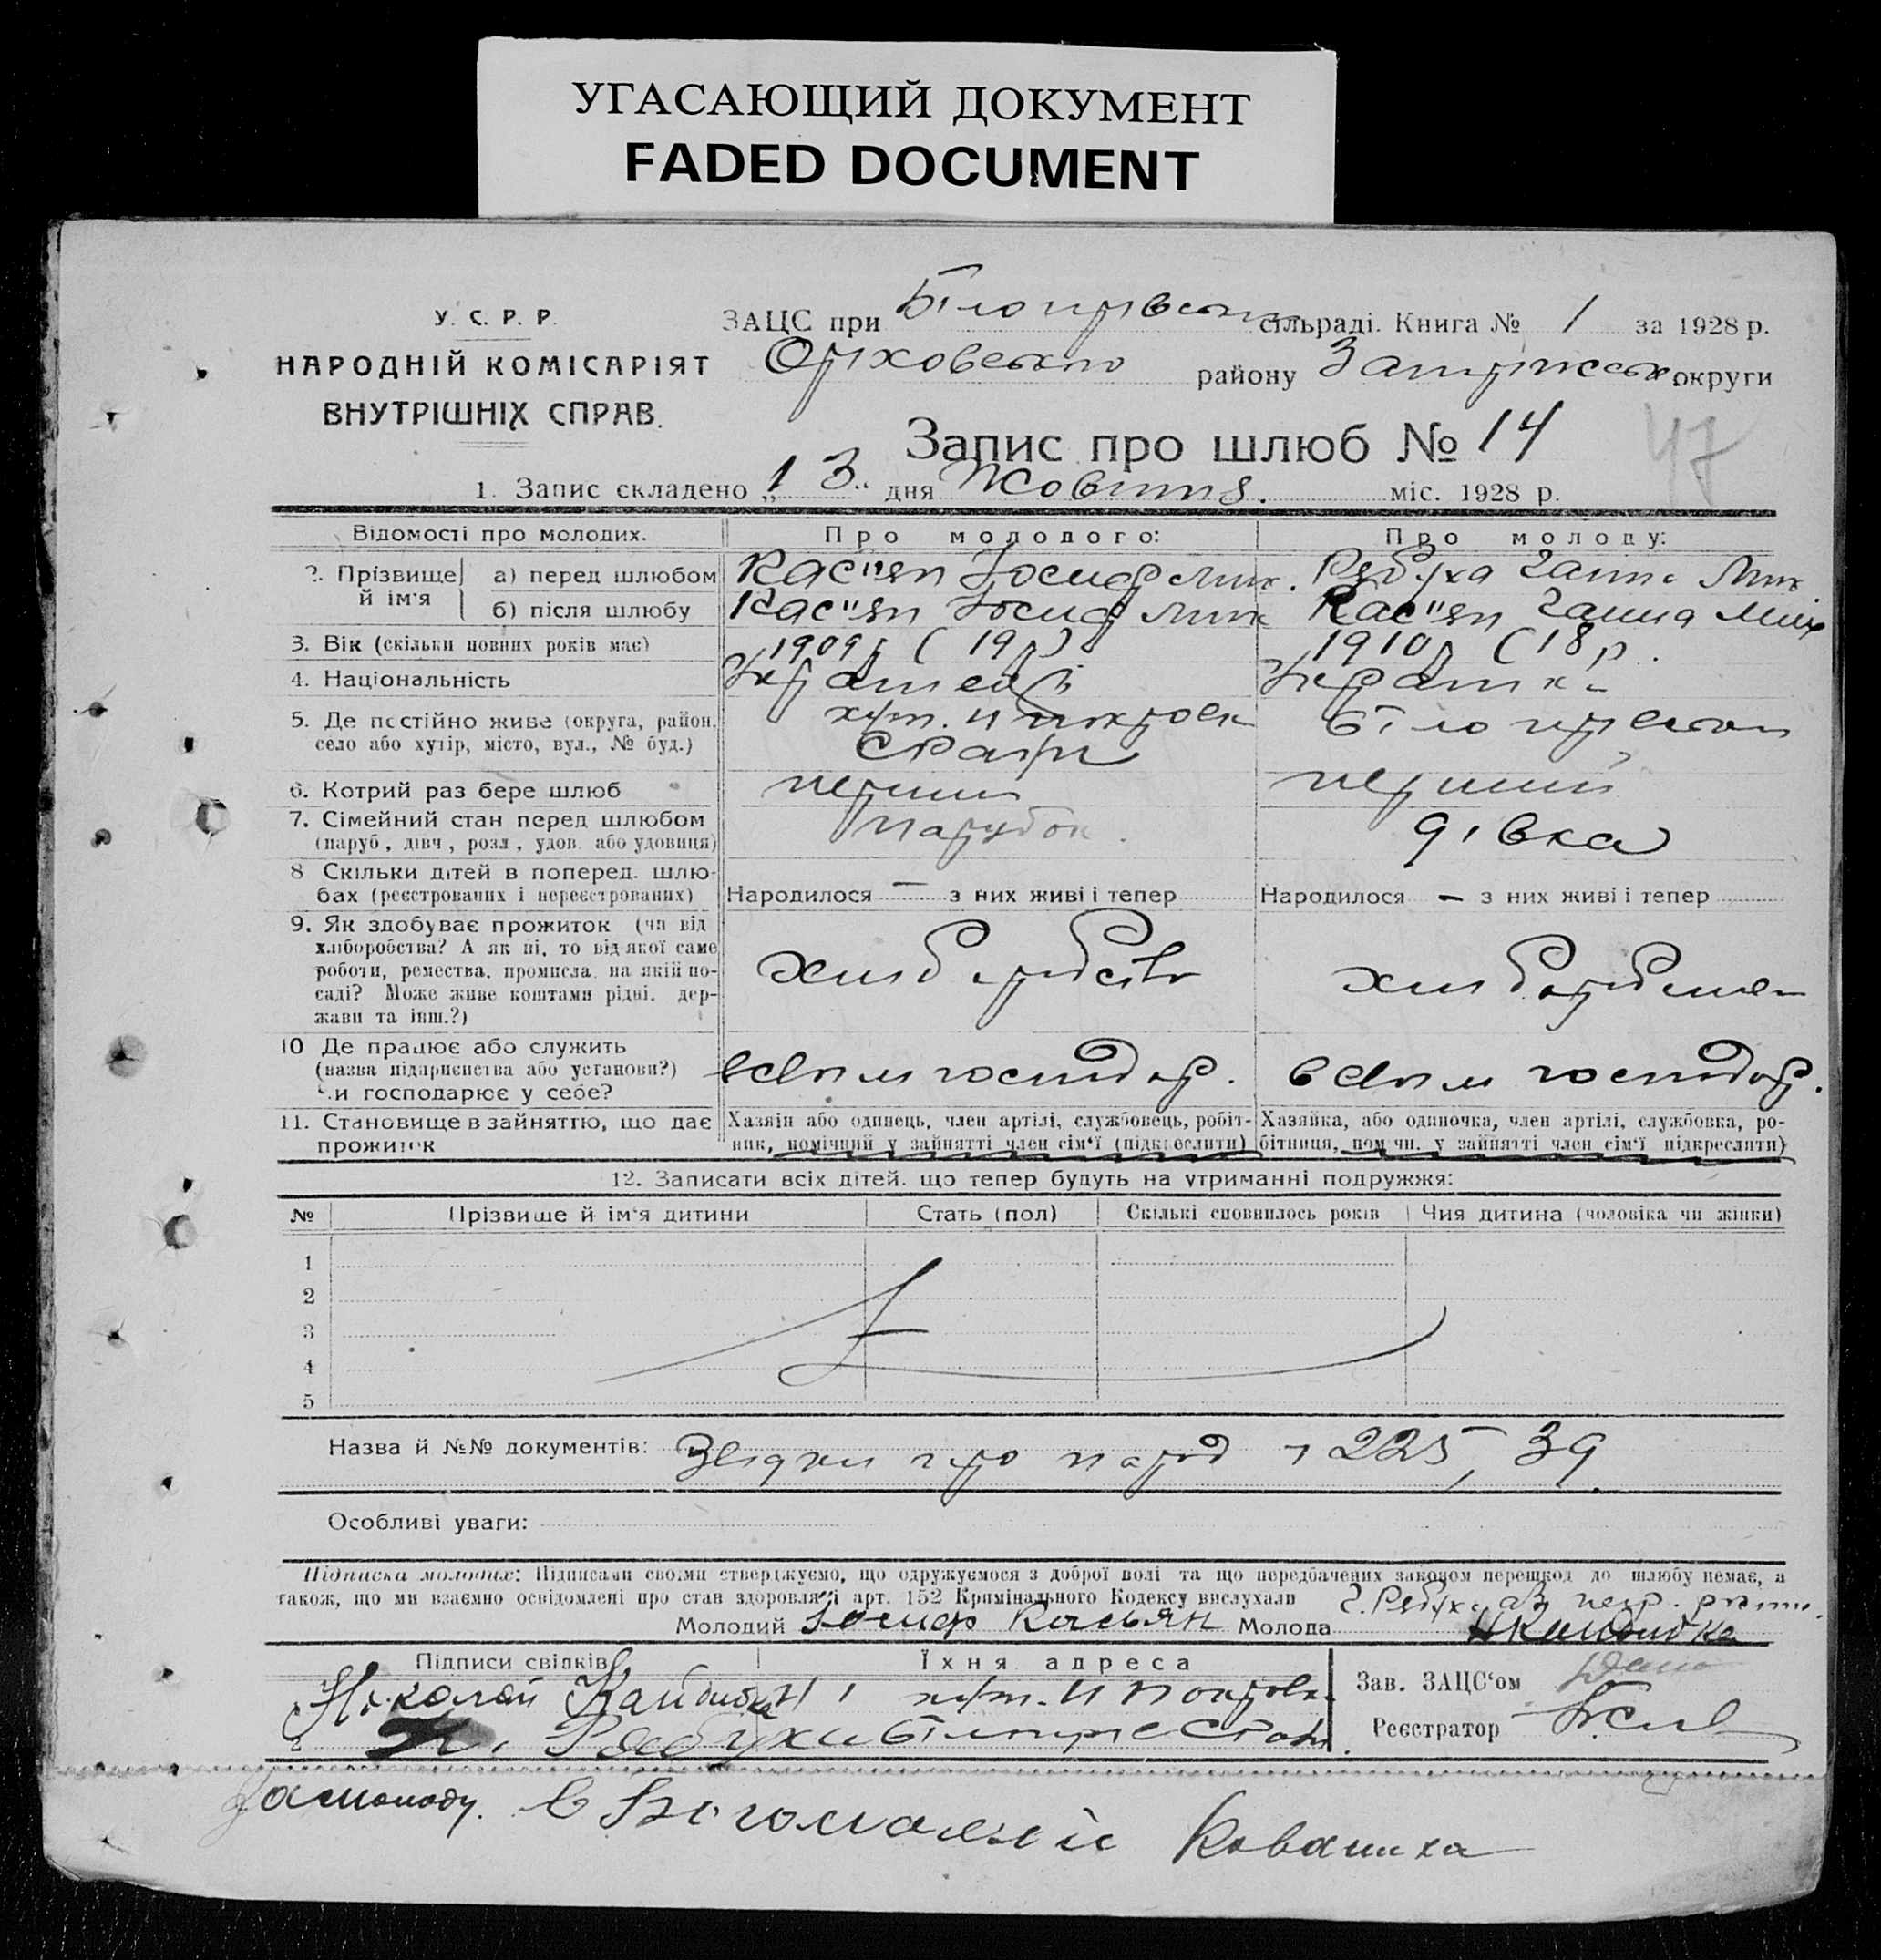 УГАСАЮЩИЙ ДОКУМЕНТ
FADED DOCUMENT
У. С. Р. Р.
НАРОДНІЙ КОМІСАРІЯТ
ВНУТРІШНІХ СПРАВ.
ЗАЦС при сільраді. Книга № 1 за 1928 р.
Оріховського району Запоріжської округи
Запис про шлюб № 14
47
1. Запис складено „13" дня Жовтня. міс. 1928 р.
Відомості про молодих. Про молодого: Про молоду:
2. Прізвище й ім'я а) перед шлюбом Кас"ян Йосиф Мих. Рябуха Ганна Мих.
б) після шлюбу Кас"ян Йосиф Мих Кас"ян Ганна Мих
3. Вік (скільки повних років має) 1909 р (19 р) 1910 р (18 р.
4. Національність Українка
5. Де постійно живе (округа, район, хут. Н Покровка
село або хутір, місто, вул., № буд.)
6. Котрий раз бере шлюб перший перший
7. Сімейний стан перед шлюбом парубок. дівка
(паруб, дівч, розл, удов. або удовиця)
8 Скільки дітей в поперед. шлю-
бах (реєстрованих і нереєстрованих) Народилося — з них живі і тепер Народилося — з них живі і тепер
9. Як здобуває прожиток (чи від
хліборобства? А як ні, то від якої саме
роботи, ремества, промисла, на якій по-
саді? Може живе коштами рідні, дер-
жави та інш.?)
хліборобство
10 Де працює або служить
(назва підприємства або установи?)
Чи господарює у себе?
в своїм господар. в своїм господар.
11. Становище в зайняттю, що дає прожиток
Хазяїн або одинець, член артілі, службовець, робіт-
ник, помічний у зайнятті член сім'ї (підкреслити)
Хазяйка, або одиночка, член артілі, службовка, ро-
бітниця, помічн. у зайнятті член сім'ї підкреслити)
12. Записати всіх дітей, що тепер будуть на утриманні подружжя:
№ Прізвище й ім'я дитини Стать (пол) Скількі сповнилось років Чия дитина (чоловіка чи жінки)
1
2
3
4
5
Назва й №№ документів: Звідки про народ 225, 39
Особливі уваги:
Підписка молодих: Підписами своїми стверджуємо, що одружуємося з доброї волі та що передбачених законом перешкод до шлюбу немає, а
також, що ми взаємно освідомлені про стан здоровля й арт. 152 Кримінального Кодексу вислухали
Молодий Йосиф Касьян Молода
Підписи свідків Їхня адреса
Николай хут. Н Покровка
2 Рябуха
Зав. ЗАЦС'ом
Реєстратор